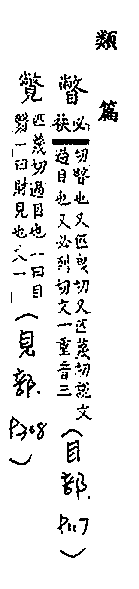 類
篇
瞥 必袂切瞥也又匹曳切又匹蔑切說文過目也又必列切文一重音三（目部．P117）
覕 匹蔑切過目也一曰目翳一曰財見也文一（見部．P308）